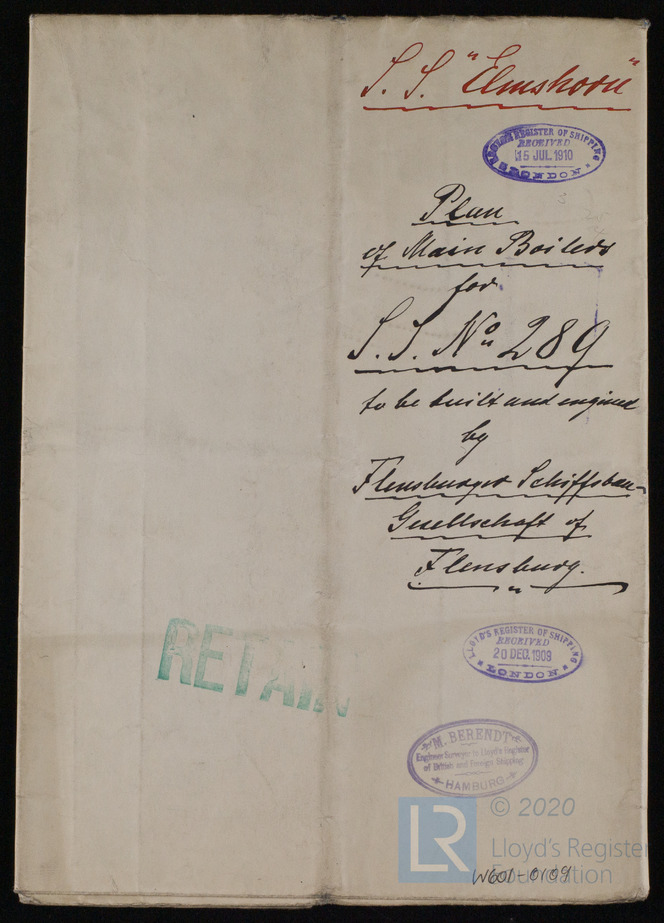 S. S. "Elmshorn"
LLOYD'S REGISTER OF SHIPPING
RECEIVED
15 JUL. 1910
LONDON
Plan
of Main Boilers
for
S. S. No 289
to be built and engined
by
Flensburger Schiffsbau-
Gesellschaft of
Flensburg.
RETAIN
LLOYD'S REGISTER OF SHIPPING
RECEIVED
20 DEC. 1909
LONDON
M. BERENDT
Engineer Surveyor to Lloyd's Register
of British and Foreign Shipping
HAMBURG
LR
© 2020
Lloyd's Register
Foundation
W601-0109